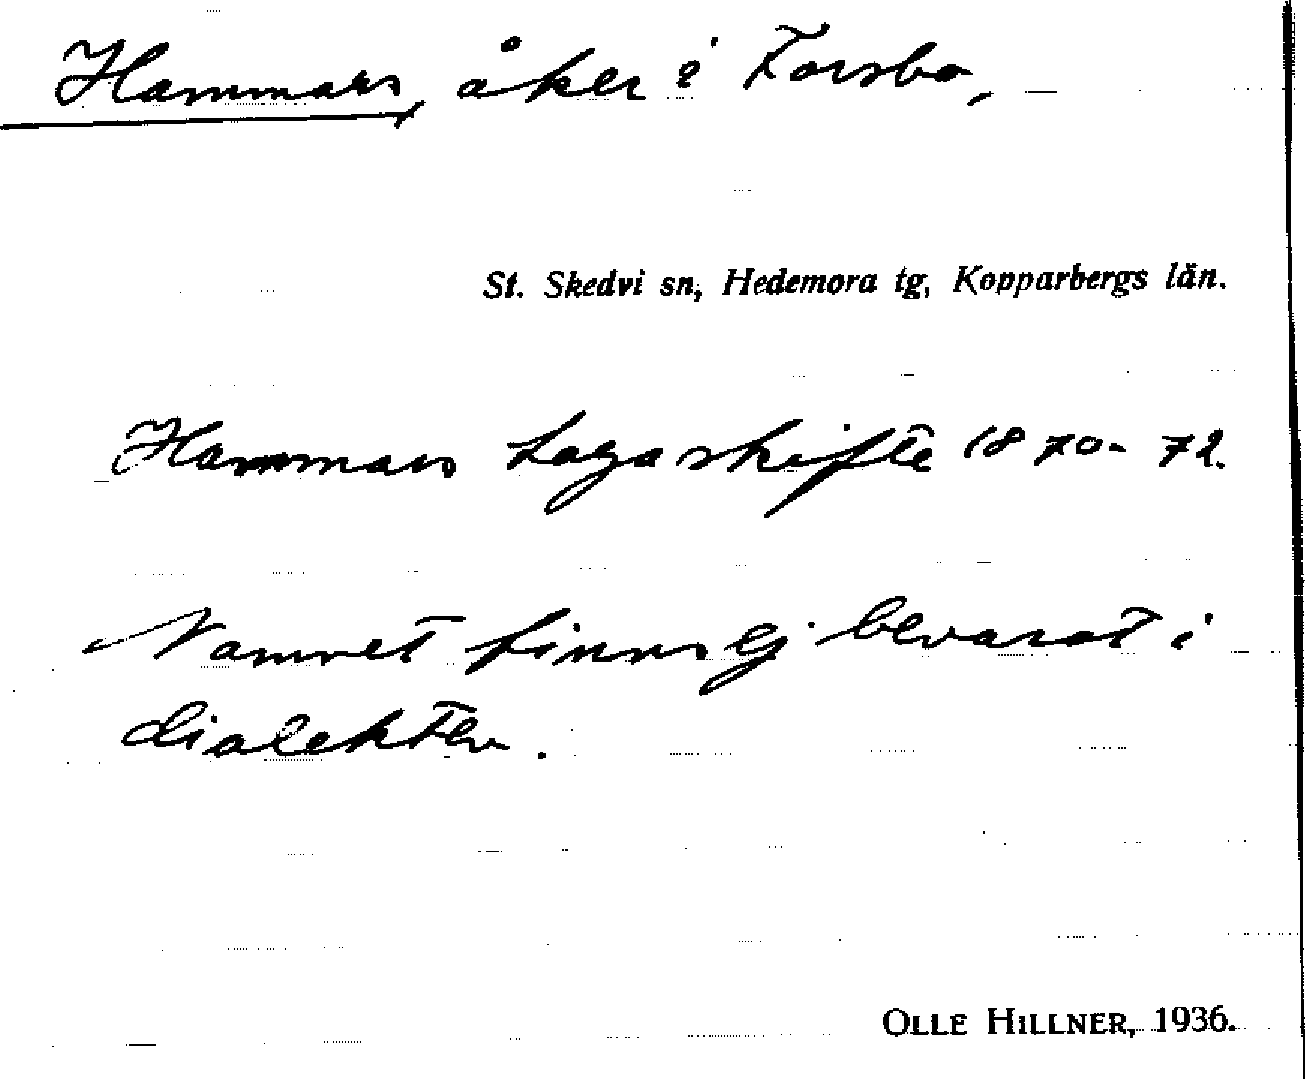 Hammars, åker i Forsbo,
St. Skedvi sn, Hedemora tg, Kopparbergs län.
Hammars Laga skifte 1870-72.
Namnet finns ej bevarat i
dialekten.
OLLE HILLNER, 1936.